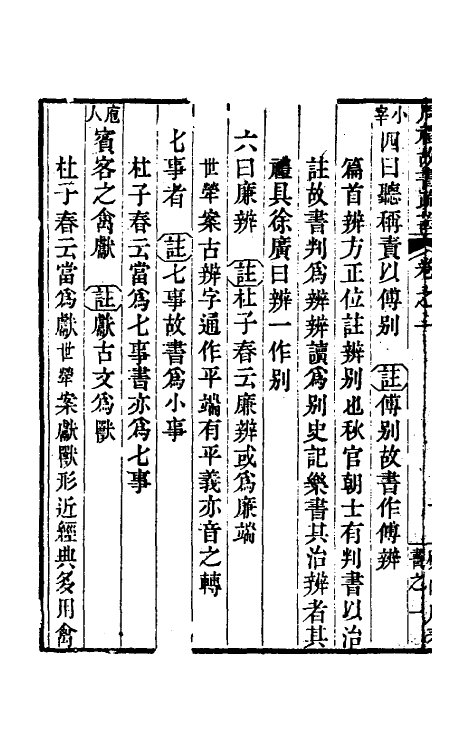 周禮故書疏證 卷之一
小宰
四曰聽稱責以傅別 註傅別故書作傅辨
篇首辨方正位註辨別也秋官朝士有判書以治
註故書判為辨辨讀為別史記樂書其治辨者其
禮具徐廣曰辨一作別
六曰廉辨 註杜子春云廉辨或為廉端
世犖案古辨字通作平端有平義亦音之轉
七事者 註七事故書為小事
杜子春云當為七事書亦為七事
庖人
賓客之禽獻 註獻古文為獸
杜子春云當為獻世犖案獻獸形近經典多用禽